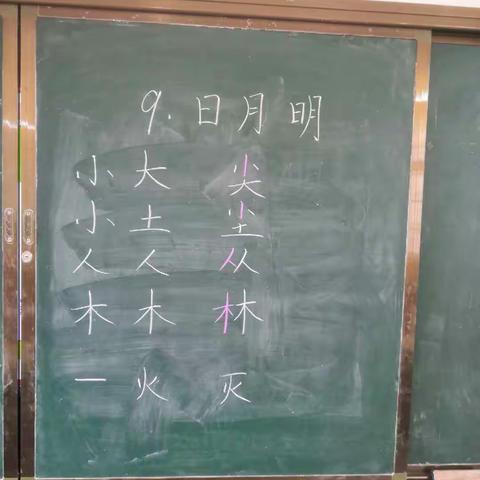 9. 日月明
小 大 尖
小 土 尘
人 人 从
木 木 林
一 火 灭